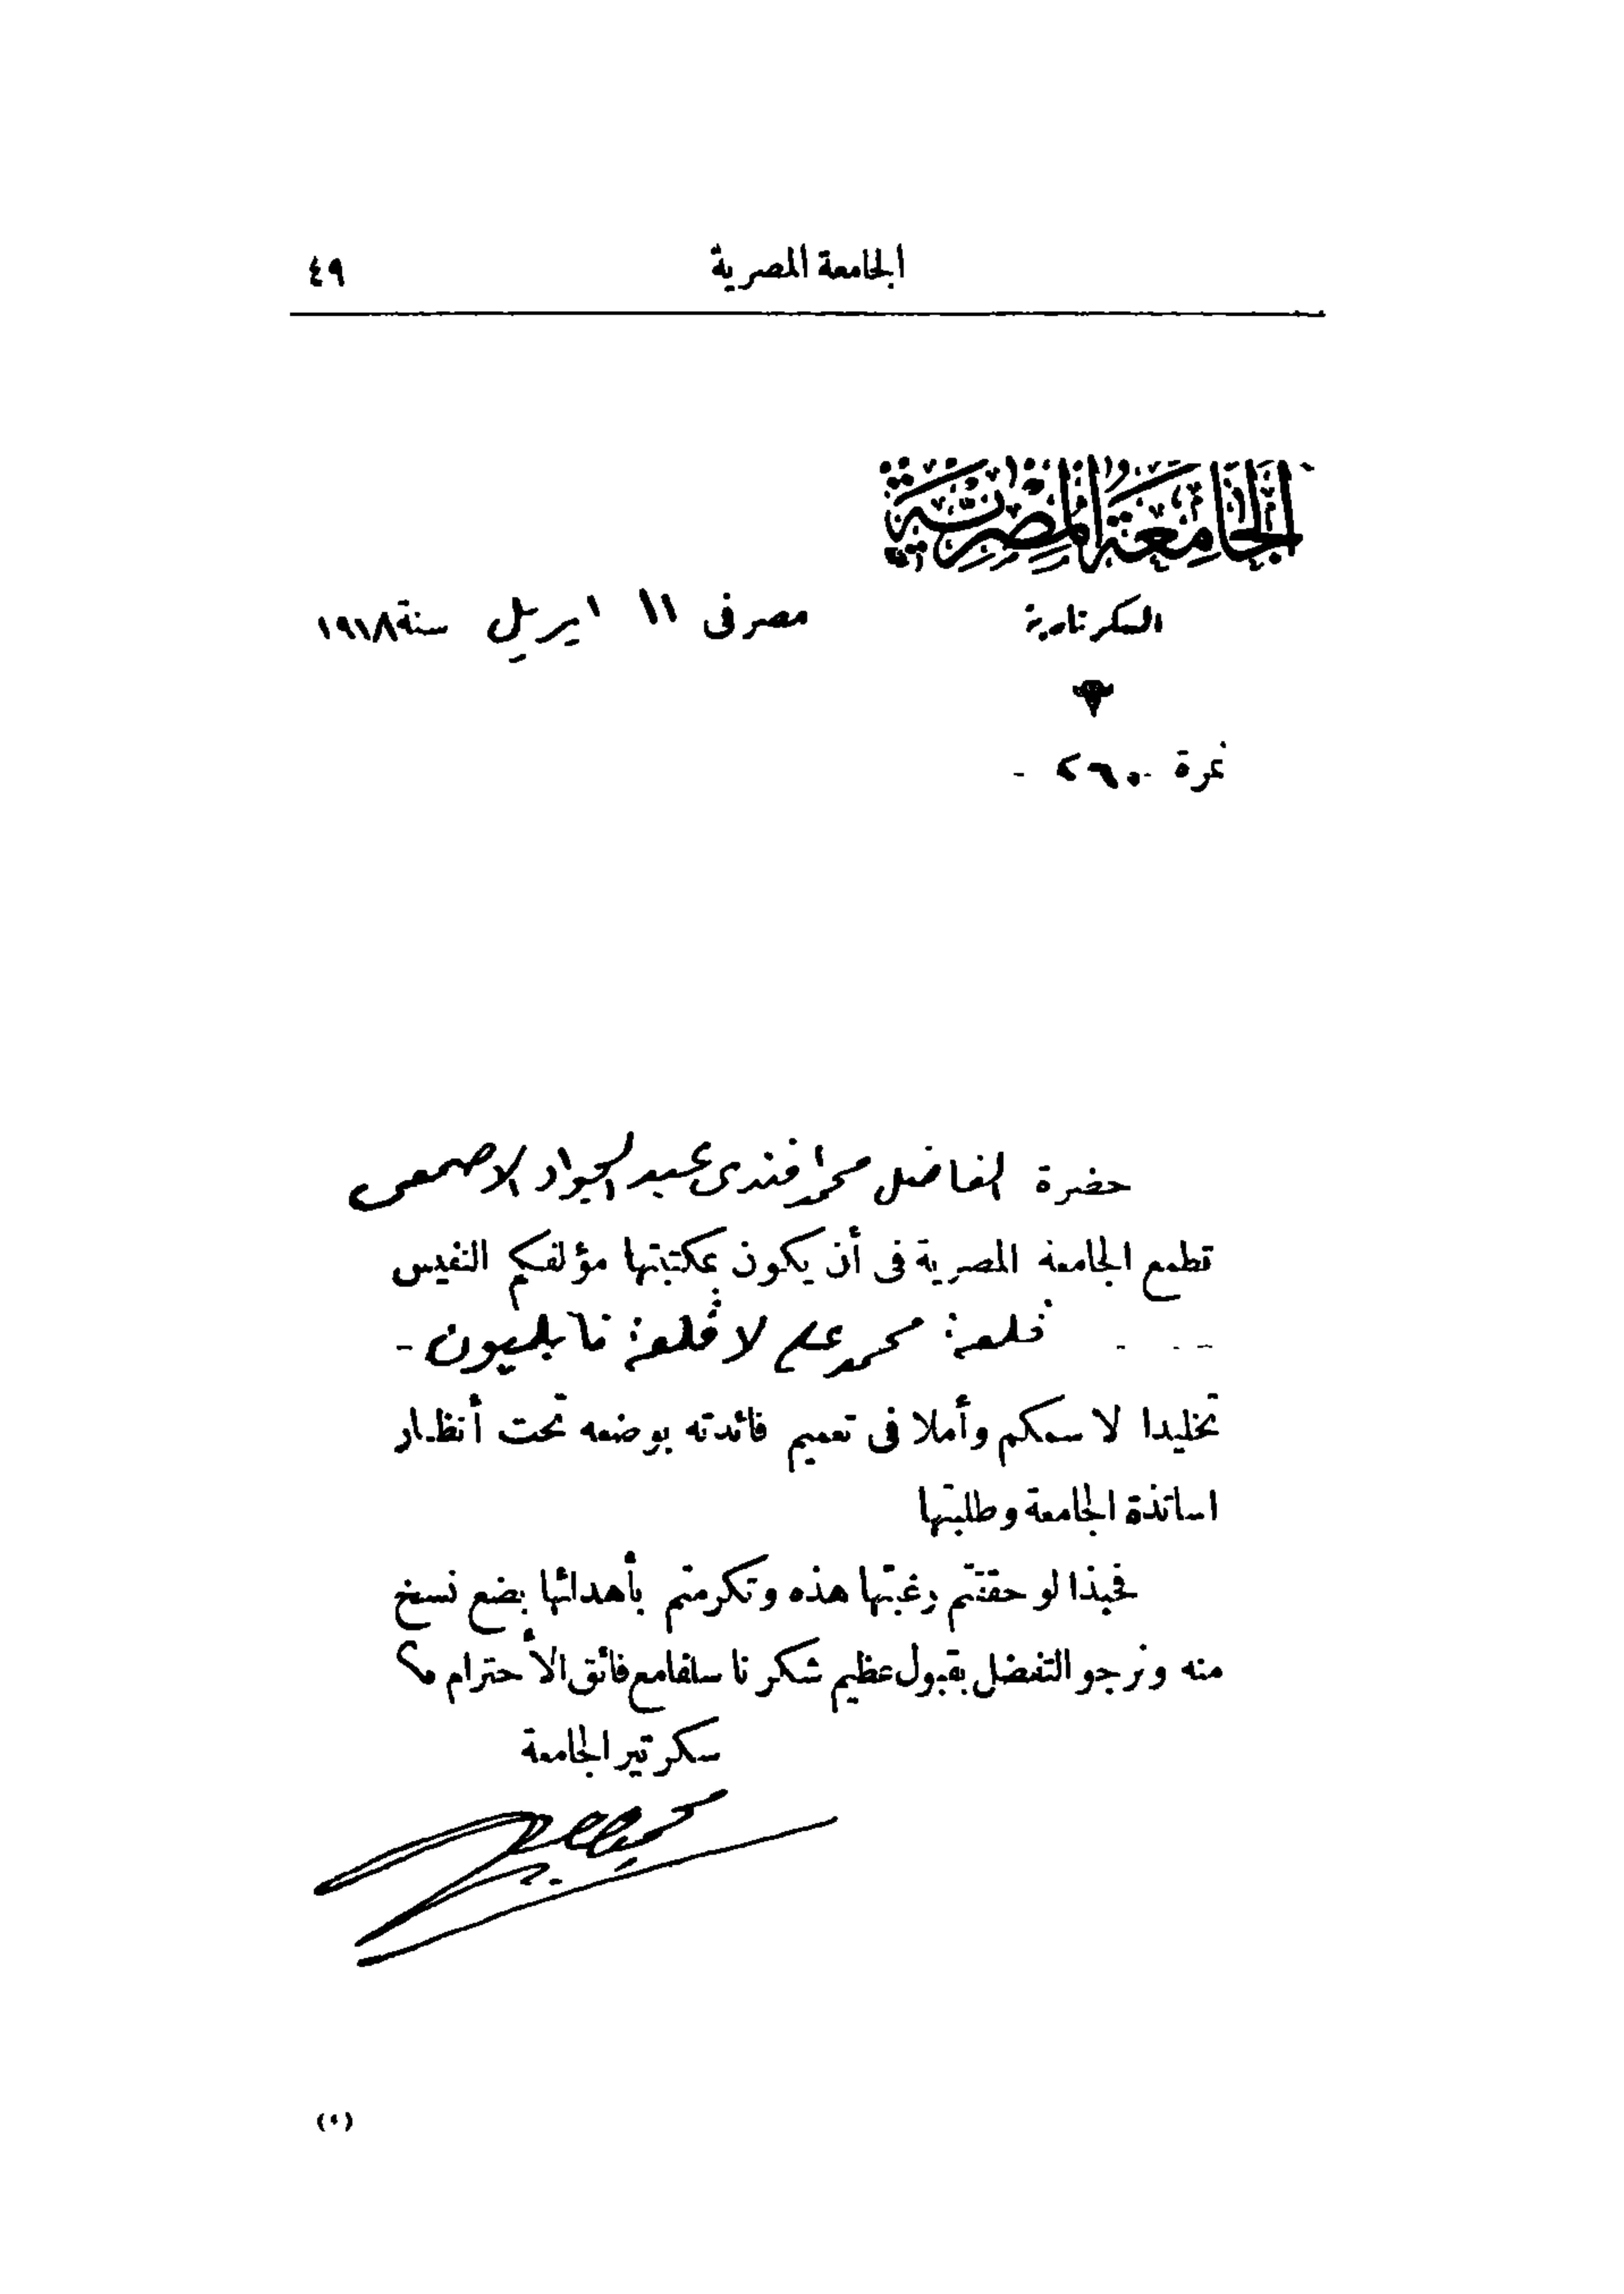 الجامعة المصرية ٤٩
الجامعة المصرية
السكرتارية
مصر فى ١١ ابريل سنة ١٩١٨
نمرة ٢٦٠ -
حضرة الفاضل محمد افندى عبد الجواد الاصمعى
تطمع الجامعة المصرية فى أن يكون بمكتبتها مؤلفكم النفيس
- - - قلعة محمد على لا قلعة نابليون -
تخليدا لاسمكم وأملا فى تعميم فائدته بوضعه تحت أنظار
اساتذة الجامعة وطلبتها
فحبذا لو حققتم رغبتها هذه وتكرمتم بأهدائها بضع نسخ
منه ونرجو التفضل بقبول عظيم شكرنا سلفا مع فائق الأحترام
سكرتير الجامعة